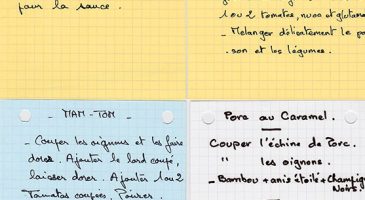 pour la sauce.
1 ou 2 tomates, nuoc et glutamate
- Melanger délicatement le pois
son et les légumes.
- MAM-TOM -
- Couper les oignons et les faire
dorer. Ajouter le lard coupé,
laisser dorer. Ajouter 1 ou 2
Tomates coupées. Poivrer.
Porc au Caramel.
Couper l'échine de Porc.
" les oignons.
- Bambou + anis étoilé + Champig
Noirs.